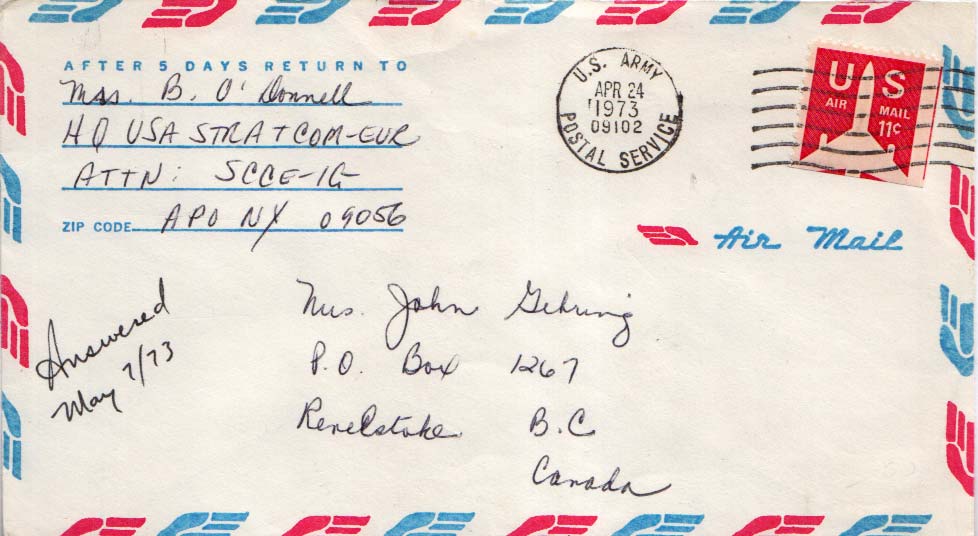 AFTER 5 DAYS RETURN TO
Mrs. B. O'Donnell
HQ USA STRATCOM-EUR
ATTN: SCCE-IG
ZIP CODE APO NY 09056
U.S. ARMY
APR 24
1973
09102
POSTAL SERVICE
U S
AIR MAIL
11¢
Air Mail
Answered
May 7/73
Mrs. John Gehring
P.O. Box 1267
Revelstoke B.C
Canada